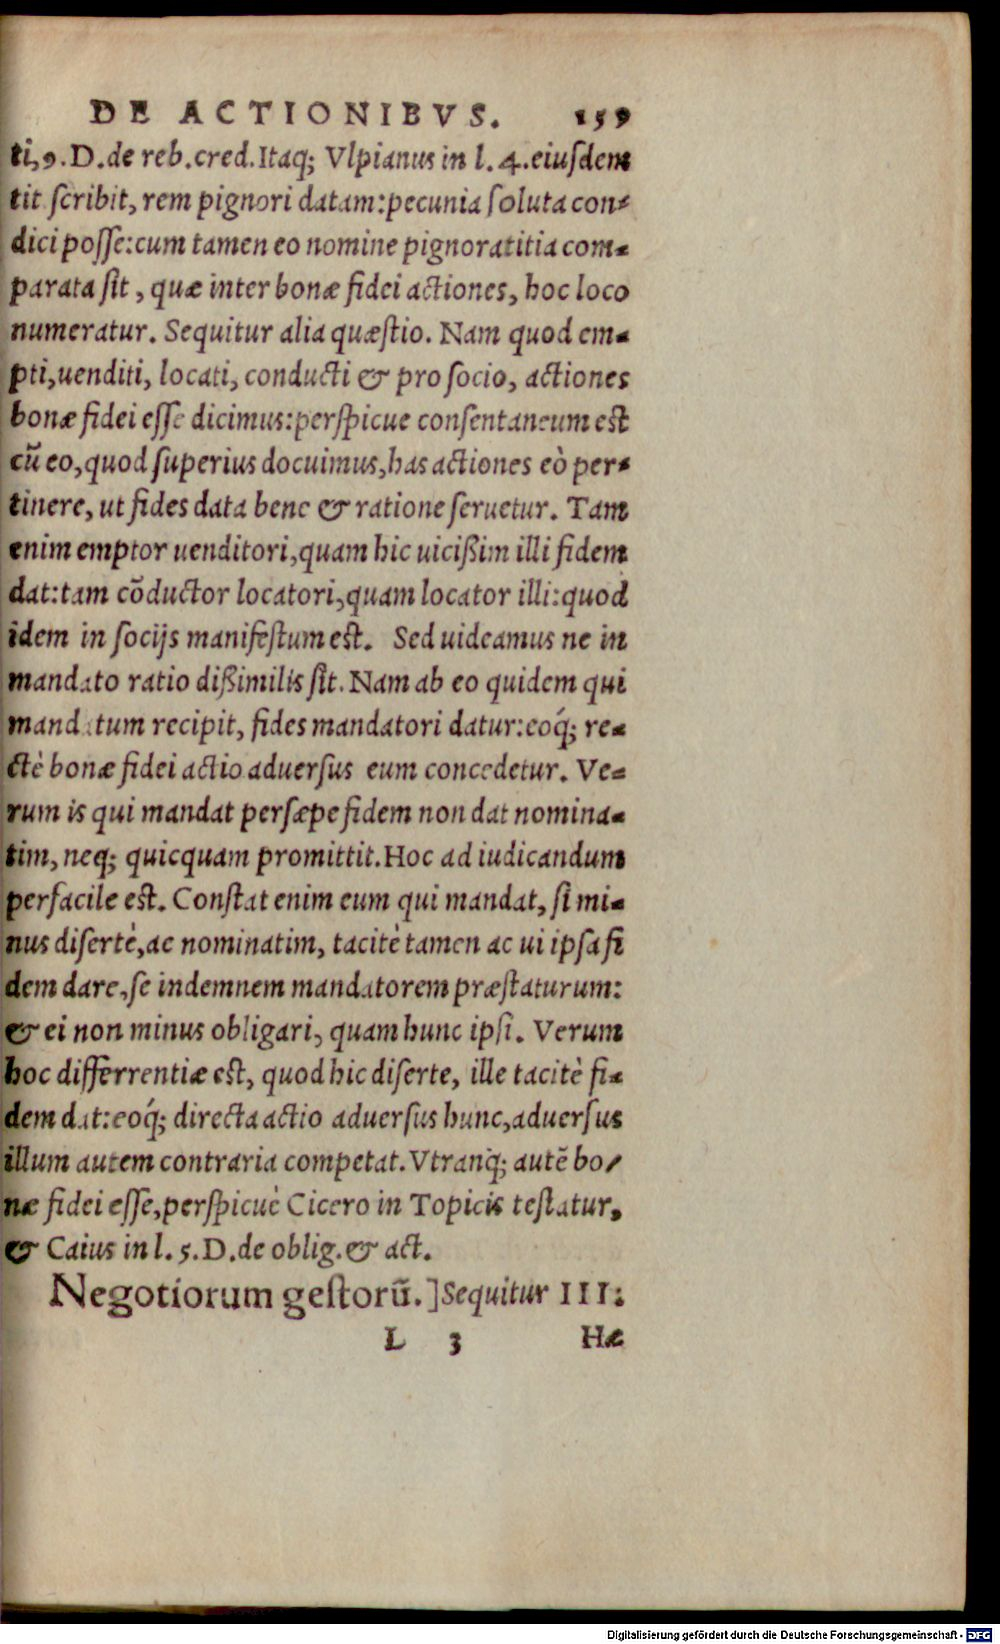 DE ACTIONIBVS. 159
ti, 9. D. de reb. cred. Itaq; Vlpianus in l. 4. eiusdem
tit scribit, rem pignori datam: pecunia soluta con-
dici posse: cum tamen eo nomine pignoratitia com-
parata sit, quæ inter bonæ fidei actiones, hoc loco
numeratur. Sequitur alia quæstio. Nam quod em-
pti, uenditi, locati, conducti & pro socio, actiones
bonæ fidei esse dicimus: perspicue consentaneum est
cũ eo, quod superius docuimus, has actiones eò per-
tinere, ut fides data bene & ratione seruetur. Tam
enim emptor uenditori, quam hic uicißim illi fidem
dat: tam cõductor locatori, quam locator illi: quod
idem in socijs manifestum est. Sed uideamus ne in
mandato ratio dißimilis sit. Nam ab eo quidem qui
mandatum recipit, fides mandatori datur: eoq́; re-
ctè bonæ fidei actio aduersus eum concedetur. Ve-
rum is qui mandat persæpe fidem non dat nomina-
tim, neq; quicquam promittit. Hoc ad iudicandum
perfacile est. Constat enim eum qui mandat, si mi-
nus disertè, ac nominatim, tacitè tamen ac ui ipsa fi
dem dare, se indemnem mandatorem præstaturum:
& ei non minus obligari, quam hunc ipsi. Verum
hoc differrentiæ est, quod hic diserte, ille tacitè fi-
dem dat: eoq́; directa actio aduersus hunc, aduersus
illum autem contraria competat. Vtranq́; autẽ bo-
næ fidei esse, perspicuè Cicero in Topicis testatur,
& Caius in l. 5. D. de oblig. & act.
Negotiorum gestorũ.] Sequitur III:
L 3 Hæ
Digitalisierung gefördert durch die Deutsche Forschungsgemeinschaft - DFG